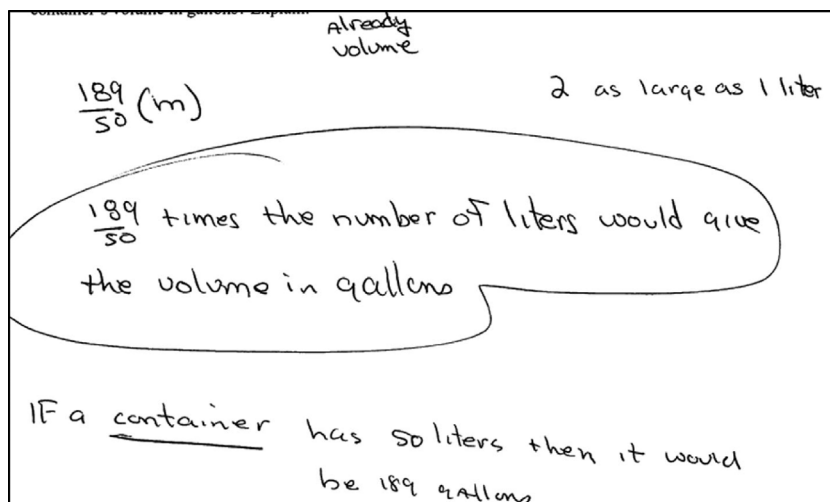 container's volume in gallons? Explain.
Already
volume
189/50 (m)
2 as large as 1 liter
189/50 times the number of liters would give
the volume in gallons
IF a container has 50 liters then it would
be 189 gallons